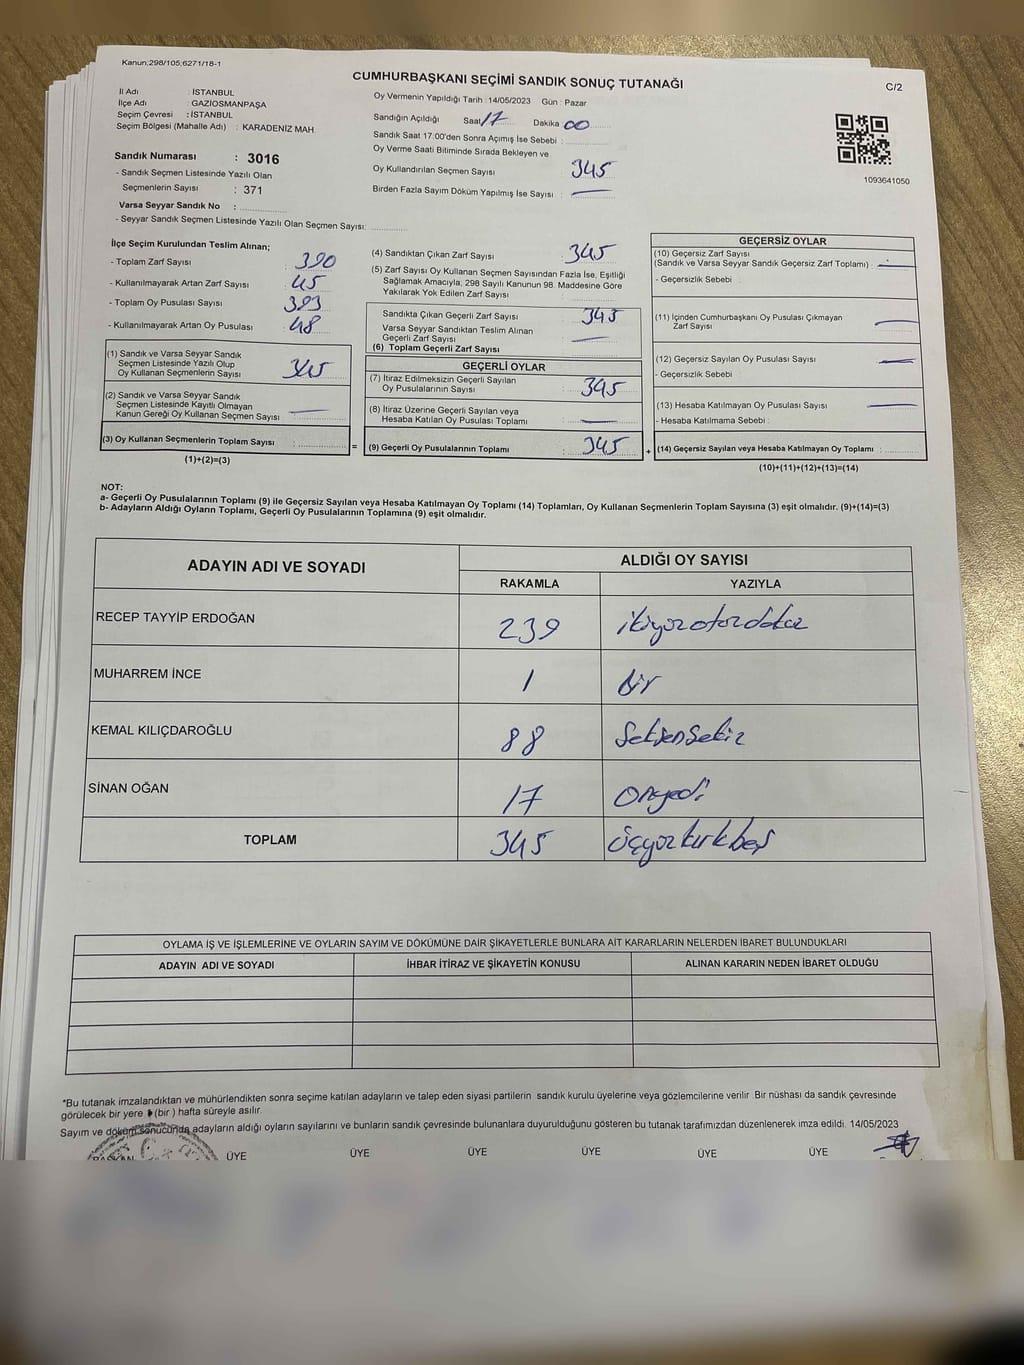 Kanun;298/105;6271/18-1
CUMHURBAŞKANI SEÇİMİ SANDIK SONUÇ TUTANAĞI
C/2
İl Adı : İSTANBUL
İlçe Adı : GAZİOSMANPAŞA
Seçim Çevresi : İSTANBUL
Seçim Bölgesi (Mahalle Adı) : KARADENİZ MAH.
Sandık Numarası : 3016
- Sandık Seçmen Listesinde Yazılı Olan
Seçmenlerin Sayısı : 371
Varsa Seyyar Sandık No :
- Seyyar Sandık Seçmen Listesinde Yazılı Olan Seçmen Sayısı:
Oy Vermenin Yapıldığı Tarih : 14/05/2023 Gün : Pazar
Sandığın Açıldığı Saat 17 Dakika 00
Sandık Saat 17:00'den Sonra Açımış İse Sebebi :
Oy Verme Saati Bitiminde Sırada Bekleyen ve
Oy Kullandırılan Seçmen Sayısı : 345
Birden Fazla Sayım Döküm Yapılmış İse Sayısı :
1093641050
İlçe Seçim Kurulundan Teslim Alınan;
- Toplam Zarf Sayısı : 390
- Kullanılmayarak Artan Zarf Sayısı : 45
- Toplam Oy Pusulası Sayısı : 393
- Kullanılmayarak Artan Oy Pusulası : 48
(1) Sandık ve Varsa Seyyar Sandık
Seçmen Listesinde Yazılı Olup
Oy Kullanan Seçmenlerin Sayısı : 345
(2) Sandık ve Varsa Seyyar Sandık
Seçmen Listesinde Kayıtlı Olmayan
Kanun Gereği Oy Kullanan Seçmen Sayısı :
(3) Oy Kullanan Seçmenlerin Toplam Sayısı :
(1)+(2)=(3)
(4) Sandıktan Çıkan Zarf Sayısı : 345
(5) Zarf Sayısı Oy Kullanan Seçmen Sayısından Fazla İse, Eşitliği
Sağlamak Amacıyla, 298 Sayılı Kanunun 98. Maddesine Göre
Yakılarak Yok Edilen Zarf Sayısı :
Sandıkta Çıkan Geçerli Zarf Sayısı : 345
Varsa Seyyar Sandıktan Teslim Alınan
Geçerli Zarf Sayısı :
(6) Toplam Geçerli Zarf Sayısı
GEÇERLİ OYLAR
(7) İtiraz Edilmeksizin Geçerli Sayılan
Oy Pusulalarının Sayısı : 345
(8) İtiraz Üzerine Geçerli Sayılan veya
Hesaba Katılan Oy Pusulası Toplamı :
= (9) Geçerli Oy Pusulalarının Toplamı : 345 +
GEÇERSİZ OYLAR
(10) Geçersiz Zarf Sayısı
(Sandık ve Varsa Seyyar Sandık Geçersiz Zarf Toplamı) :
- Geçersizlik Sebebi :
(11) İçinden Cumhurbaşkanı Oy Pusulası Çıkmayan
Zarf Sayısı :
(12) Geçersiz Sayılan Oy Pusulası Sayısı :
- Geçersizlik Sebebi :
(13) Hesaba Katılmayan Oy Pusulası Sayısı :
- Hesaba Katılmama Sebebi :
(14) Geçersiz Sayılan veya Hesaba Katılmayan Oy Toplamı :
(10)+(11)+(12)+(13)=(14)
NOT:
a- Geçerli Oy Pusulalarının Toplamı (9) ile Geçersiz Sayılan veya Hesaba Katılmayan Oy Toplamı (14) Toplamları, Oy Kullanan Seçmenlerin Toplam Sayısına (3) eşit olmalıdır. (9)+(14)=(3)
b- Adayların Aldığı Oyların Toplamı, Geçerli Oy Pusulalarının Toplamına (9) eşit olmalıdır.
ADAYIN ADI VE SOYADI ALDIĞI OY SAYISI
RAKAMLA YAZIYLA
RECEP TAYYİP ERDOĞAN 239 ikiyüzotuzdokuz
MUHARREM İNCE 1 bir
KEMAL KILIÇDAROĞLU 88 Seksensekiz
SİNAN OĞAN 17 Onyedi
TOPLAM 345 üçyüzkırkbeş
OYLAMA İŞ VE İŞLEMLERİNE VE OYLARIN SAYIM VE DÖKÜMÜNE DAİR ŞİKAYETLERLE BUNLARA AİT KARARLARIN NELERDEN İBARET BULUNDUKLARI
ADAYIN ADI VE SOYADI İHBAR İTİRAZ VE ŞİKAYETİN KONUSU ALINAN KARARIN NEDEN İBARET OLDUĞU
*Bu tutanak imzalandıktan ve mühürlendikten sonra seçime katılan adayların ve talep eden siyasi partilerin sandık kurulu üyelerine veya gözlemcilerine verilir. Bir nüshası da sandık çevresinde
görülecek bir yere (bir ) hafta süreyle asılır.
Sayım ve döküm sonucunda adayların aldığı oyların sayılarını ve bunların sandık çevresinde bulunanlara duyurulduğunu gösteren bu tutanak tarafımızdan düzenlenerek imza edildi. 14/05/2023
BAŞKAN ÜYE ÜYE ÜYE ÜYE ÜYE ÜYE